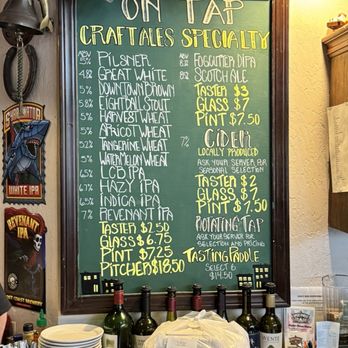 ON TAP
CRAFT ALES SPECIALTY
ABV
5% PILSNER
4.8% GREAT WHITE
5% DOWNTOWN BROWN
5.8% EIGHTBALL STOUT
5% HARVEST WHEAT
5% APRICOT WHEAT
5.2% TANGERINE WHEAT
5% WATERMELON WHEAT
6.5% LCB IPA
6.7% HAZY IPA
6.5% INDICA IPA
7% REVENANT IPA
TASTER $2.50
GLASS $6.75
PINT $7.25
PITCHER $18.50
ABV
9% FOGCUTTER DIPA
8% SCOTCH ALE
TASTER $3
GLASS $7
PINT $7.50
7% CIDER
LOCALLY PRODUCED
ASK YOUR SERVER FOR
SEASONAL SELECTION
TASTER $2
GLASS $7
PINT $7.50
ROTATING TAP
ASK YOUR SERVER FOR
SELECTION AND PRICING
TASTING PADDLE
SELECT 6
$14.50
WHITE IPA
REVENANT
IPA
LOST COAST BREWERY